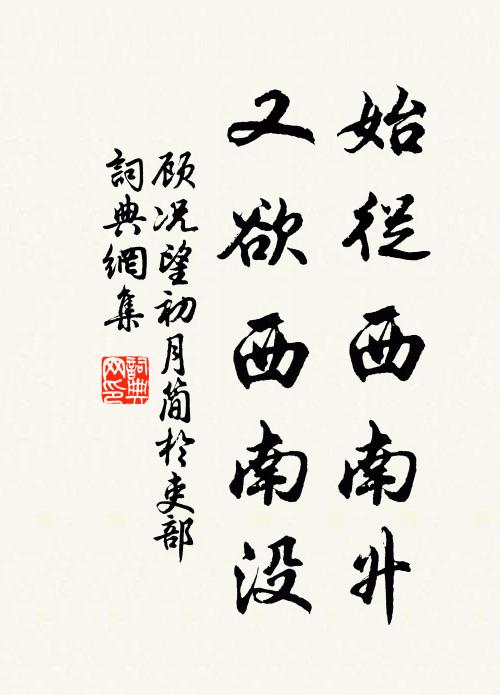 始從西南升
又欲西南没
顾况望初月简於吏部
詞典網集
詞典網印